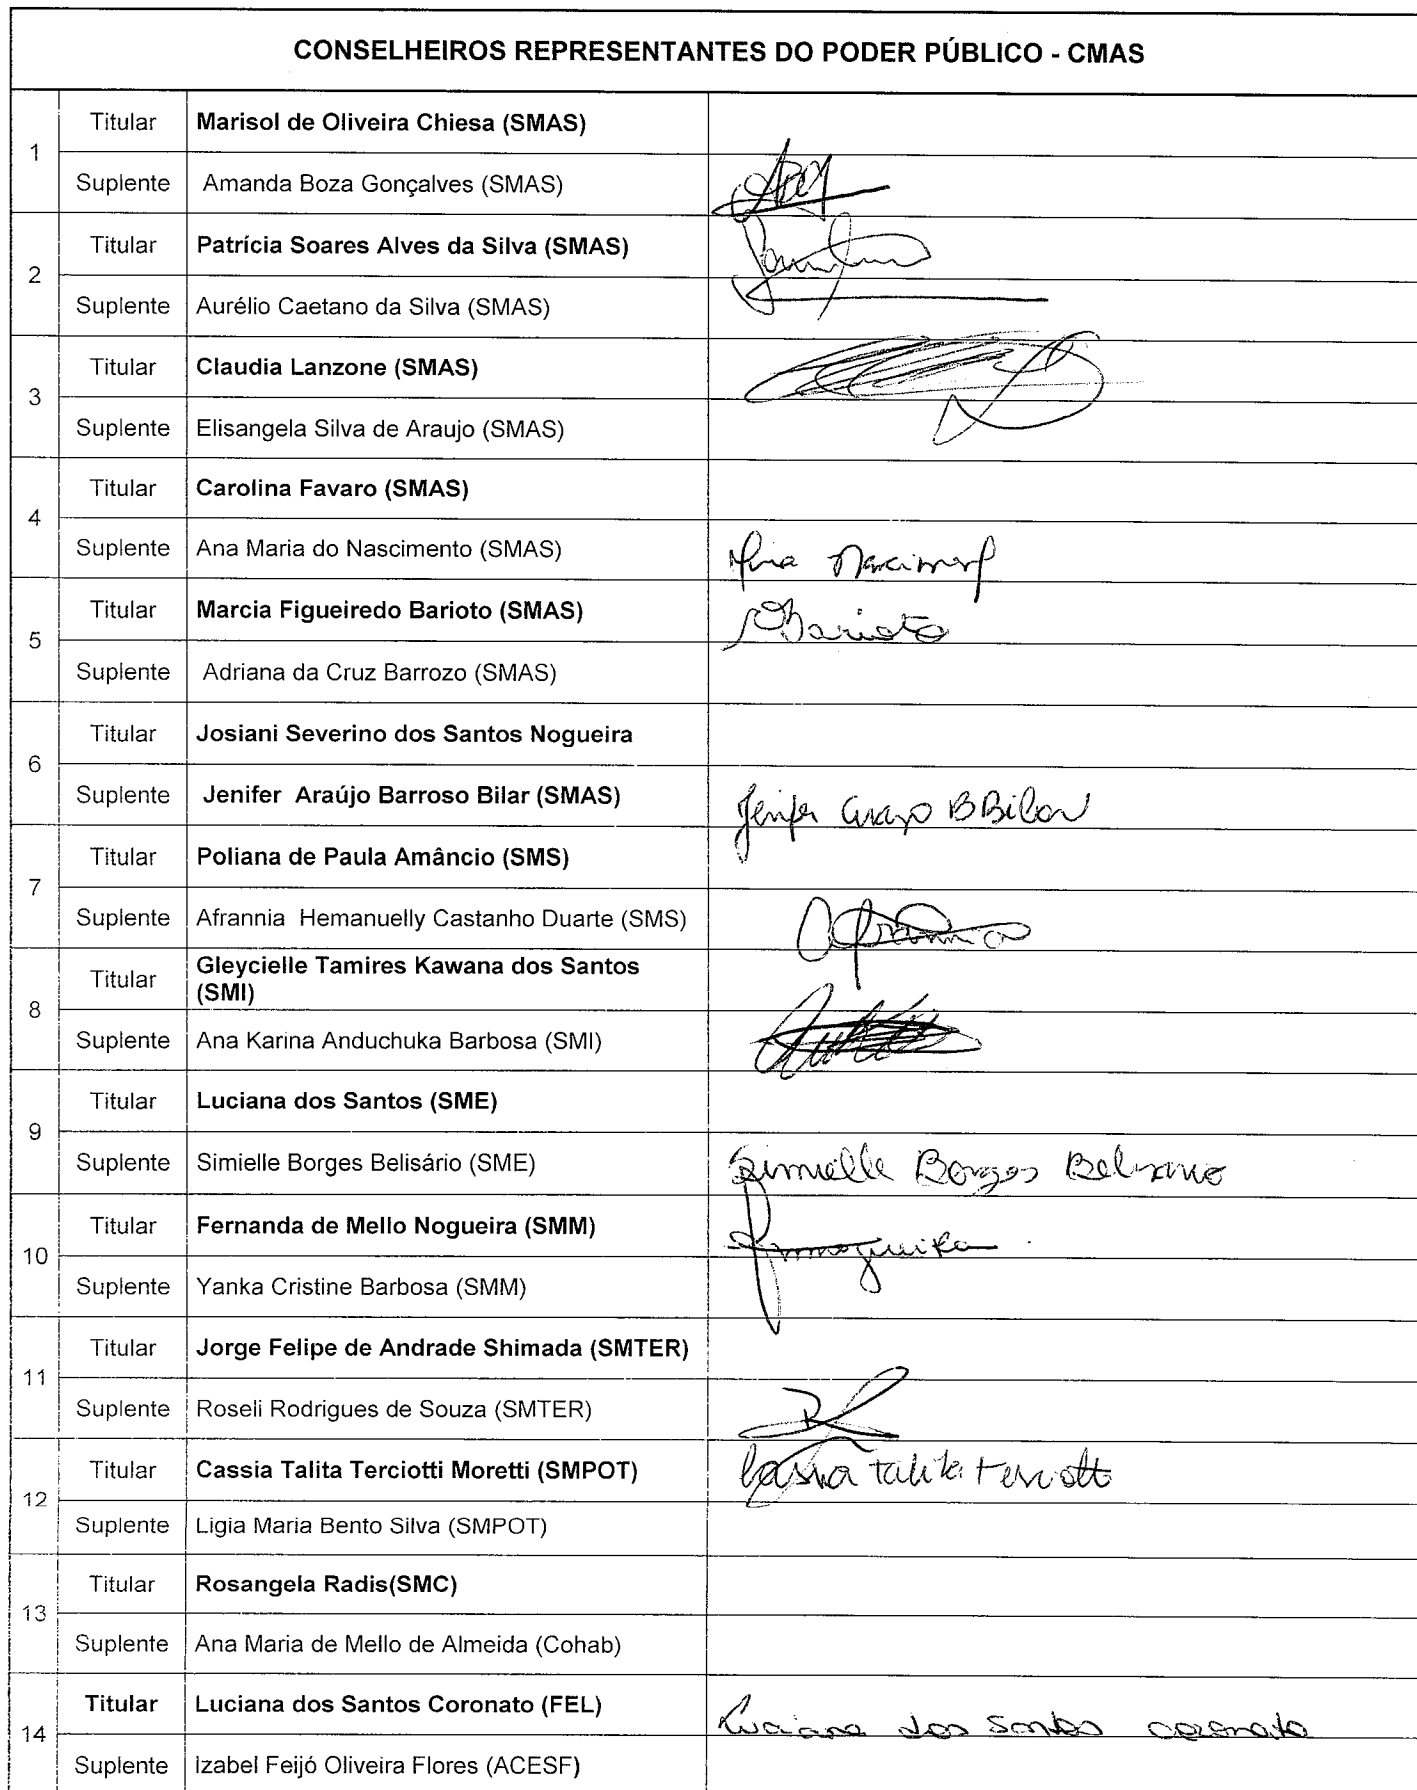 CONSELHEIROS REPRESENTANTES DO PODER PÚBLICO - CMAS
1
Titular Marisol de Oliveira Chiesa (SMAS)
Suplente Amanda Boza Gonçalves (SMAS)
2
Titular Patrícia Soares Alves da Silva (SMAS)
Suplente Aurélio Caetano da Silva (SMAS)
3
Titular Claudia Lanzone (SMAS)
Suplente Elisangela Silva de Araujo (SMAS)
4
Titular Carolina Favaro (SMAS)
Suplente Ana Maria do Nascimento (SMAS)
5
Titular Marcia Figueiredo Barioto (SMAS) Barioto
Suplente Adriana da Cruz Barrozo (SMAS)
6
Titular Josiani Severino dos Santos Nogueira
Suplente Jenifer Araújo Barroso Bilar (SMAS) Jenifer Araujo B Bilar
7
Titular Poliana de Paula Amâncio (SMS)
Suplente Afrannia Hemanuelly Castanho Duarte (SMS) Afrannia
8
Titular Gleycielle Tamires Kawana dos Santos
(SMI)
Suplente Ana Karina Anduchuka Barbosa (SMI)
9
Titular Luciana dos Santos (SME)
Suplente Simielle Borges Belisário (SME) Simielle Borges Belisario
10
Titular Fernanda de Mello Nogueira (SMM)
Suplente Yanka Cristine Barbosa (SMM)
11
Titular Jorge Felipe de Andrade Shimada (SMTER)
Suplente Roseli Rodrigues de Souza (SMTER)
12
Titular Cassia Talita Terciotti Moretti (SMPOT) Cassia Talita Terciotti
Suplente Ligia Maria Bento Silva (SMPOT)
13
Titular Rosangela Radis(SMC)
Suplente Ana Maria de Mello de Almeida (Cohab)
14
Titular Luciana dos Santos Coronato (FEL) Luciana dos Santos Coronato
Suplente Izabel Feijó Oliveira Flores (ACESF)